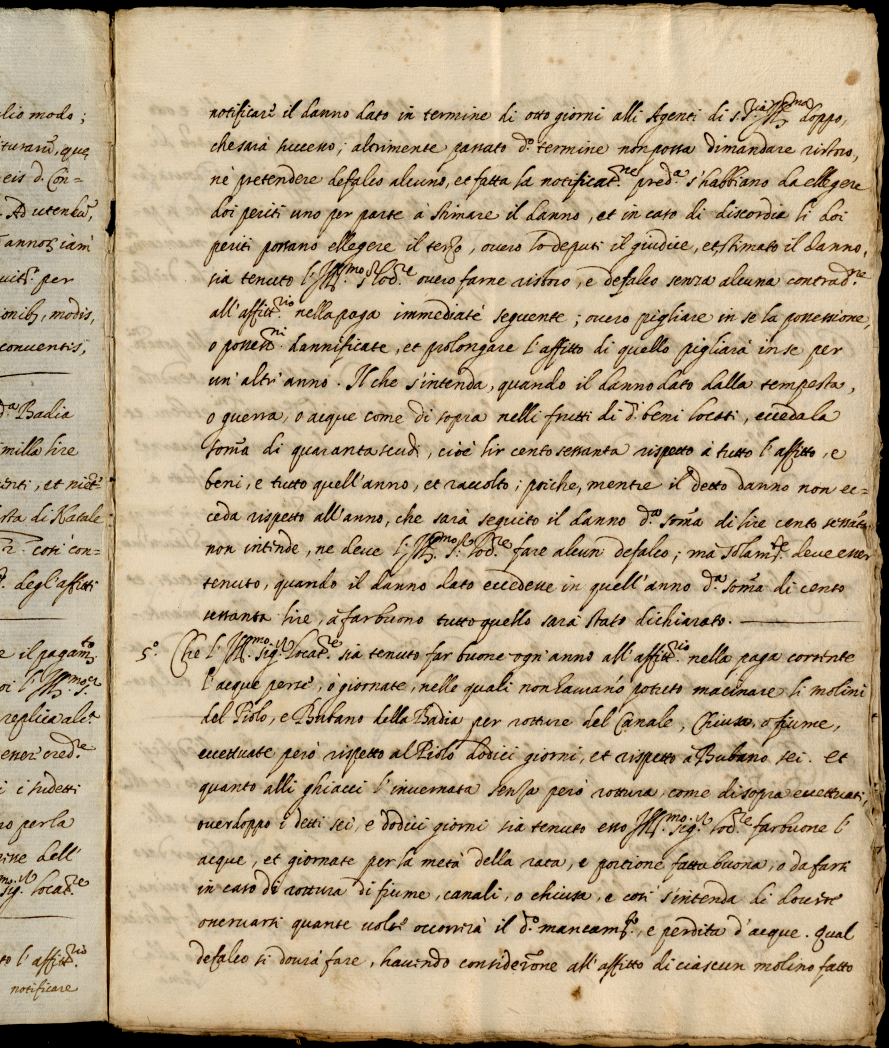 lio modo;
ituraru, que
eis d. Con=
Ad utendu,
annos iam
per
onib, modis,
conventis,
d.ª Badia
milla lire
enti, et
sta di Natale
così con=
degl'affitti
e il pagam.to
replica
ener cred.re
i i sudetti
no per la
dell'
Sig. locat.re
to l'affitt.rio
notificare
notificare il danno dato in termine di otto giorni alli Agenti di doppo,
che sarà successo; altrimente passato d.º termine non possa dimandare ristoro,
nè pretendere defalco alcuno, et fatta la notificat.ne pred.ª s'habbiano da ellegere
doi periti uno per parte à stimare il danno, et in caso di discordia li doi
periti possano ellegere il terzo, overo lo deputi il giudice, et stimato il danno,
sia tenuto l'Ill.mo S.r loc.re overo farne ristoro, e defalco senza alcuna contrad.ne
all'affitt.rio nella paga immediaté seguente; overo pigliare in se la possessione,
o possess.ni dannificate, et prolongare l'affitto di quello pigliarà in se per
un'altr'anno. Il che s'intenda, quando il danno dato dalla tempesta,
o guerra, o acque come di sopra nelli frutti di d.i beni locati, ecceda la
soma di quaranta scudi, cioè lir cento settanta rispetto à tutto l'affitto, e
beni, e tutto quell'anno, et raccolto; poiche, mentre il detto danno non ec=
ceda rispetto all'anno, che sarà seguito il danno d.ª soma di lire cento settāta
non intende, ne deve l'Ill.mo S.r loc.re fare alcun defalco; mà solam.te deve esser
tenuto, quando il danno dato eccedesse in quell'anno d.ª soma di cento
settanta lire, à far buono tutto quello sarà stato dichiarato.
5.º Che l'Ill.mo Sig.r locat.re sia tenuto far buone ogn'anno all'affitt.rio nella paga corrente
l'acque perse, ò giornate, nelle quali non havranno potuto macinare li molini
del Piolo, e Bubano della Badia per rotture del Canale, Chiusa, o fiume,
eccettuate però rispetto al Piolo dodici giorni, et rispetto à Bubano sei. et
quanto alli ghiacci l'invernata senza però rottura, come di sopra eccettuati,
over doppo i detti sei, e dodici giorni sia tenuto esso Ill.mo Sig.r loc.re far buone l'
acque, et giornate per la metà della rata, e portione fatta buona, o da farsi
in caso di rottura di fiume, canali, o chiusa, e così s'intenda di doversi
osservarsi quante volte occorrerà il d.º mancam.to, e perdita d'acque. Qual
defalco si dovrà fare, havendo consideratione all'affitto di ciascun molino fatto